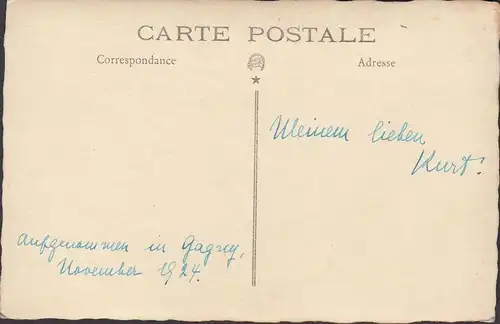 CARTE POSTALE
Correspondance
Adresse
Meinem lieben
Kurt!
Aufgenommen in Gagny,
November 1924.